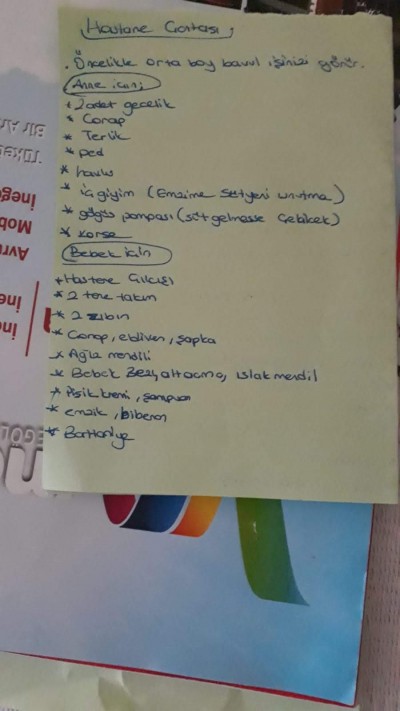 Hastane Çantası
. Öncelikle orta boy bavul işinizi görür.
Anne için;
* 2 adet gecelik
* Çorap
* Terlik
* ped
* havlu
* iç giyim (Emzirme sütyeni unutma)
* göğüs pompası (süt gelmesse çekilcek)
* korse
Bebek için
* Hastane Çıkışı
* 2 tane takım
* 2 zıbın
* Çorap, eldiven, şapka
* Ağız mendili
* Bebek Bezi, alt açma, ıslak mendil
* Pişik kremi, şampuan
* emzik, biberon
* Battaniye
Bir
Tüke
inegö
Mobi
Avru
ine
ine
EGÖL